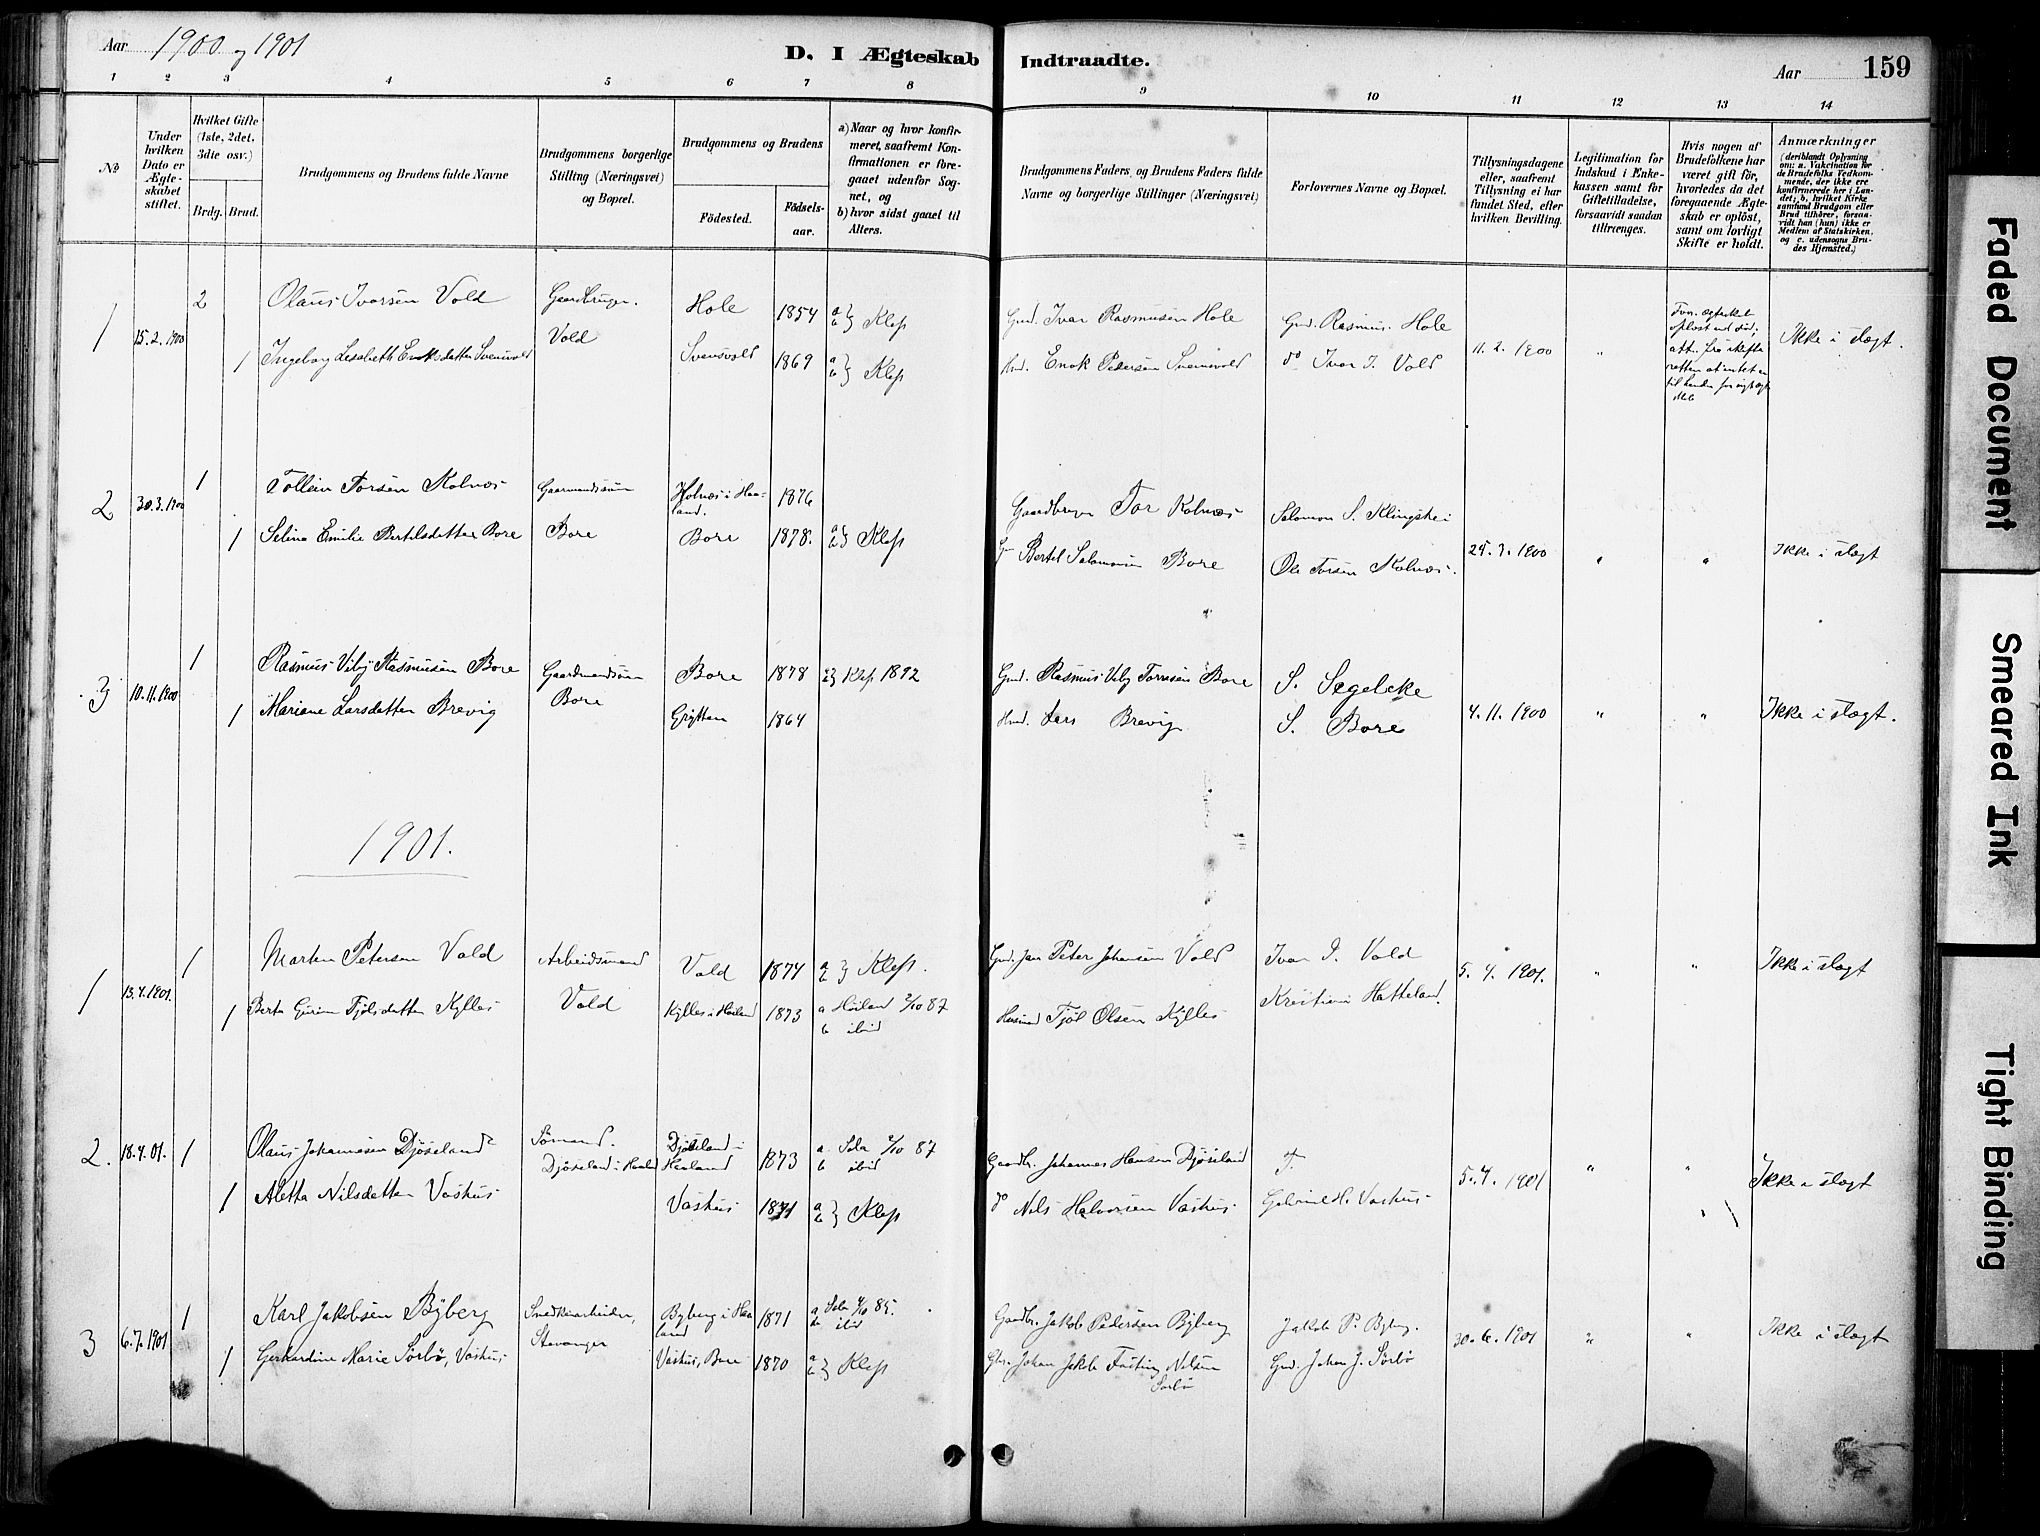 Aar 1900 og 1901
D. I Ægteskab Indtraadte.
Aar 159
1 2 3 4 5 6 7 8 9 10 11 12 13 14
No
Under hvilken Dato er Ægteskabet stiftet.
Hvilket Gifte (1ste, 2det, 3die osv.)
Brdg. Brud.
Brudgommens og Brudens fulde Navne
Brudgommens borgerlige Stilling (Næringsvei) og Bopæl.
Brudgommens og Brudens
Födested.
Födselsaar.
a) Naar og hvor konfirmeret, saafremt Konfirmationen er foregaaet udenfor Sognet, og
b) hvor sidst gaaet til Alters.
Brudgommens Faders, og Brudens Faders fulde Navne og borgerlige Stillinger (Næringsvei)
Forlovernes Navne og Bopæl.
Tillysningsdagene eller, saafremt Tillysning ei har fundet Sted, efter hvilken Bevilling.
Legitimation for Indskud i Enkekassen samt for Giftetilladelse, forsaavidt saadan tiltrænges.
Hvis nogen af Brudefolkene har været gift før, hvorledes da det foregaaende Ægteskab er oplöst, samt om lovligt Skifte er holdt.
Anmærkninger
(deriblandt Oplysning om: a. Vakcination for de Brudefolks Vedkommende, der ikke ere konfirmerede her i Landet; b. hvilket Kirkesamfund Brudgom eller Brud tilhörer, forsaavidt han (hun) ikke er Medlem af Statskirken, og c. udensogns Brudes Hjemsted.)
1 15.2.1900 2 Olaus Ivarsen Vold Gaardbruger Hole 1854 a b } Klep Gmd. Ivar Rasmusen Hole Gmd. Rasmus Hole
1 Ingeborg Lisabeth Enoksdatter Svensvold Vold Svensvold 1869 a b } Klep Hmd. Enok Pedersen Svensvold do Ivar I. Vold 11.2.1900 " Ikke i slægt.
2 30.3.1900 1 Tollein Torsen Kolnæs Gaarmandssøn Holnæs i Haaland. 1876 Gaardbruger Tor Kolnæs Salomon S. Klingshei
1 Selina Emilie Bertelsdatter Bore Bore Bore 1878. a b } Klep Bertel Salomonsen Bore Ole Torsen Kolnæs. 25.3.1900 " " Ikke i slægt
3 10.11.1900 1 Rasmus Viby Rasmusen Bore Gaardmandssøn Bore 1878 Klep 1892 Gmd. Rasmus Viby Torresen Bore S. Segelcke
1 Mariane Larsdatter Brevig Bore Grytten 1864 Hmd. Lars Brevig S. Bore 4.11.1900 " " Ikke i slægt.
1901.
1 13.4.1901. 1 Morten Petersen Vold Arbeidsmand Vold 1874 a b } Klep. Gmd. Jan Peter Johansen Vold Ivar I. Vold
1 Berta Gurine Tjølsdatter Kylles Vold Kylles i Høiland 1873 a Høiland 2/10 87 b ibid Husmand Tjøl Olsen Kylles Kristian Hatteland. 5.4.1901. " " Ikke i slægt
2. 18.4.01. 1 Olaus Johannesen Djøseland Sømand. Djøseland i Haaland 1873 a Sola 2/10 87 b ibid Gaardbr. Johannes Hansen Djøseland T.
1 Aletta Nilsdatter Vashus Djøseland i Haald Vashus 1871 a b } Klep do Nils Halvorsen Vashus Gabriel H. Vashus 5.4.1901 " " Ikke i slægt
3 6.7.1901 1 Karl Jakobsen Byberg Snedkerarbeider, Byberg i Haaland 1871 a Sola 85. b ibid Gaardbr. Jakob Pedersen Byberg Jakob P. Byberg.
1 Gerhardine Marie Sørbø, Vashus Stavanger Vashus, Bore 1870 a b } Klep Johan Jakob Fasting Nilsen Sørbø Gmd. Johan J. Sørbø 30.6.1901 " " Ikke i slægt
Faded Document
Smeared Ink
Tight Binding